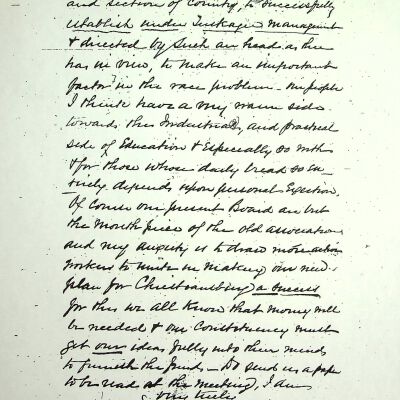 and section of County, to successfully
establish under Tuskegee management
& directed by such an head as thee
has in view, to make an important
factor in the race problem - my people
I think have a very warm side
towards the Industrial, and practical
side of Education & Especially so with
& for those whose daily bread so en-
tirely depends upon personal Exertion.
Of Course our present Board are but
the Mouth piece of the old association
and my anxiety is to draw more active
workers to unite in making our new
plan for Christiansburg a success
for this we all Know that money will
be needed & our Constituency must
get our ideas fully into their minds
to furnish the funds - do send us a paper
to be read at the meeting, I am
Very truly